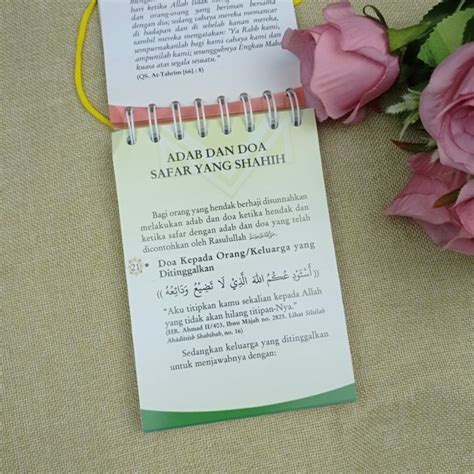 mengan. Ketika Allah tidak
dan orang-orang yang beriman bersama
dengan dia; sedang cahaya mereka memancar
di hadapan dan di sebelah kanan mereka,
sambil mereka mengatakan: "Ya Rabb kami,
sempurnakanlah bagi kami cahaya kami dan
ampunilah kami; sesungguhnya Engkau Maha
kuasa atas segala sesuatu."
(QS. At-Tahrim [66] : 8)
ADAB DAN DOA
SAFAR YANG SHAHIH
Bagi orang yang hendak berhaji disunnahkan
melakukan adab dan doa ketika hendak dan
ketika safar dengan adab dan doa yang telah
dicontohkan oleh Rasulullah
21
• Doa Kepada Orang/Keluarga yang
Ditinggalkan
(( أَسْتَوْدِعُكُمُ اللهَ الَّذِيْ لَا تَضِيْعُ وَدَائِعُهُ ))
"Aku titipkan kamu sekalian kepada Allah
yang tidak akan hilang titipan-Nya."
(HR. Ahmad II/403, Ibnu Mâjah no. 2825. Lihat Silsilah
Ahâdîtsish Shahîhah, no. 16)
Sedangkan keluarga yang ditinggalkan
untuk menjawabnya dengan: